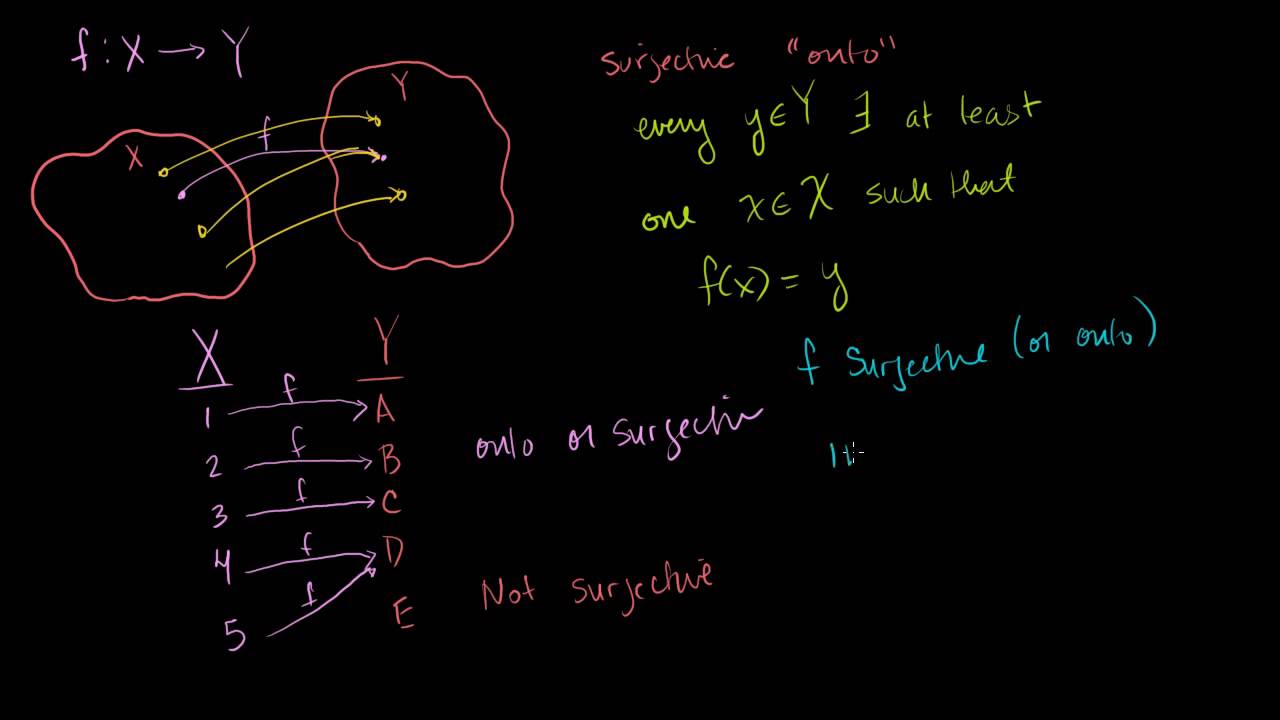 f : X → Y
surjective "onto"
every y ∈ Y ∃ at least
one x ∈ X such that
f(x) = y
X
Y
f
f surjective (or onto)
X Y
1 f A
2 f B
3 f C
4 f D
5 f E
onto or surjective
Not surjective